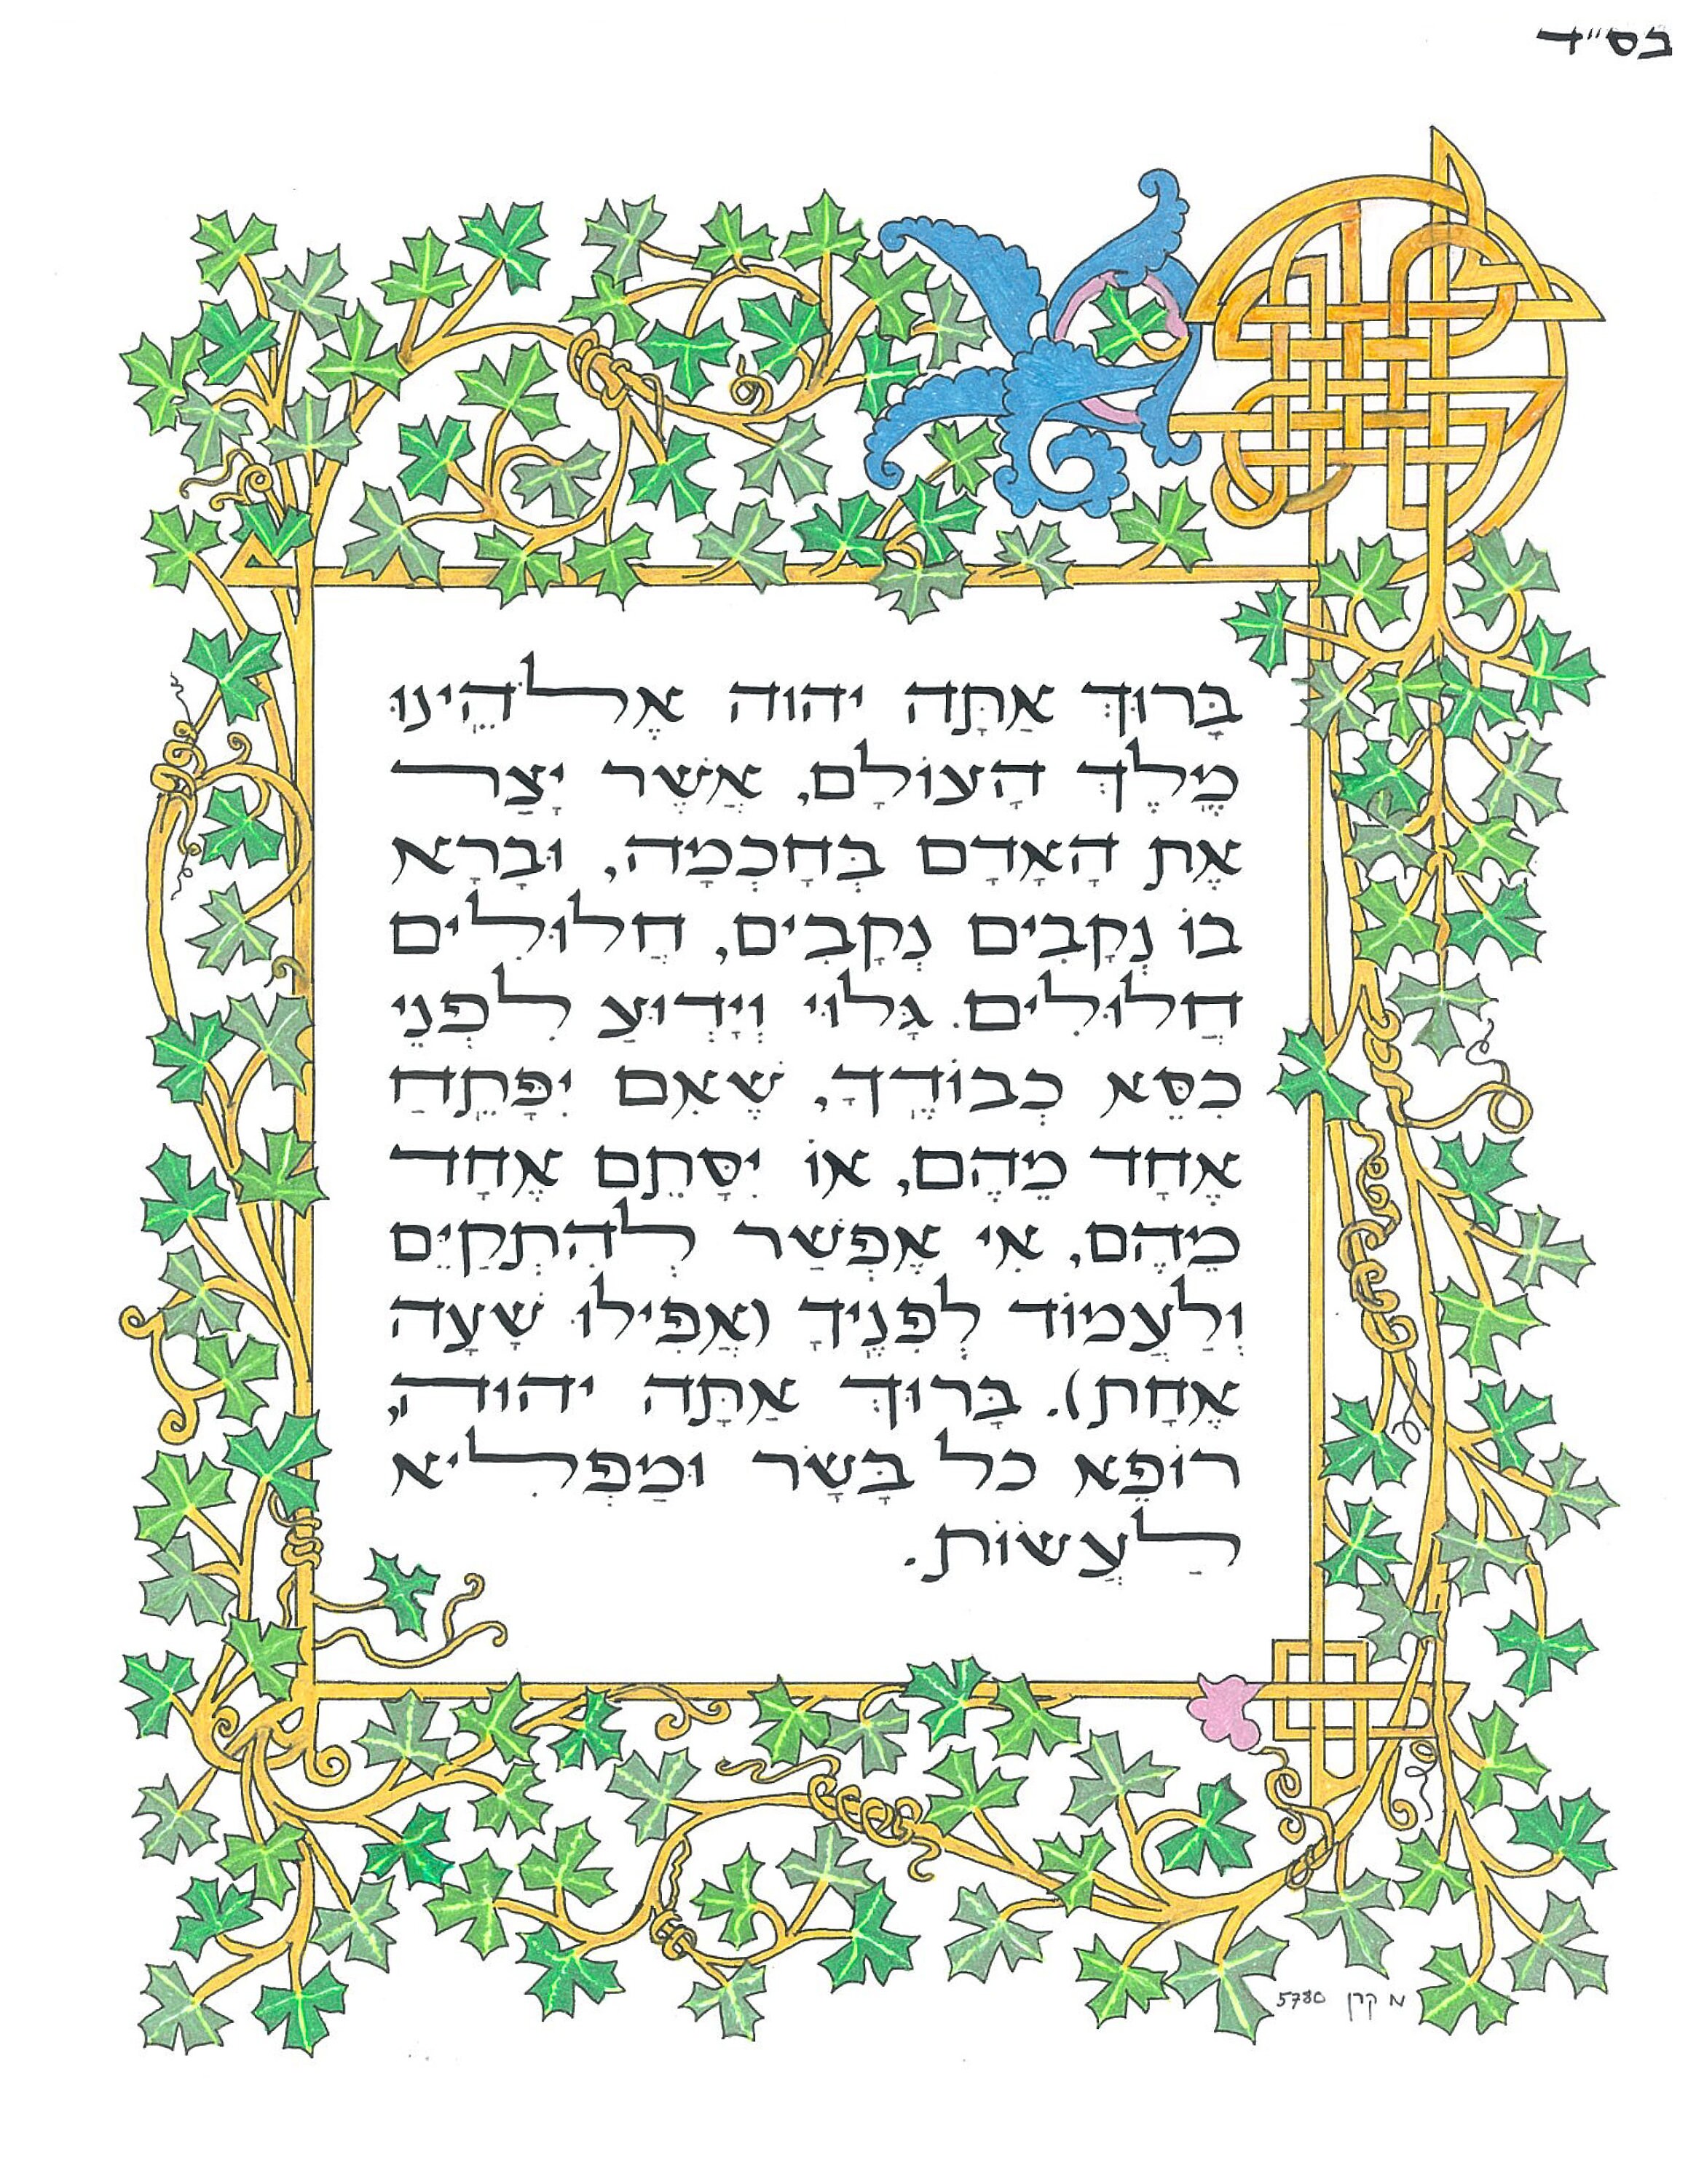 בס"ד
בָּרוּךְ אַתָּה יהוה אֱלֹהֵינוּ
מֶלֶךְ הָעוֹלָם, אֲשֶׁר יָצַר
אֶת הָאָדָם בְּחָכְמָה, וּבָרָא
בוֹ נְקָבִים נְקָבִים, חֲלוּלִים
חֲלוּלִים. גָּלוּי וְיָדוּעַ לִפְנֵי
כִסֵּא כְבוֹדֶךָ, שֶׁאִם יִפָּתֵחַ
אֶחָד מֵהֶם, אוֹ יִסָּתֵם אֶחָד
מֵהֶם, אִי אֶפְשַׁר לְהִתְקַיֵּם
וְלַעֲמוֹד לְפָנֶיךָ (אֲפִילוּ שָׁעָה
אֶחָת). בָּרוּךְ אַתָּה יהוה,
רוֹפֵא כל בָּשָׂר וּמַפְלִיא
לַעֲשׂוֹת.
מ קרן 5780